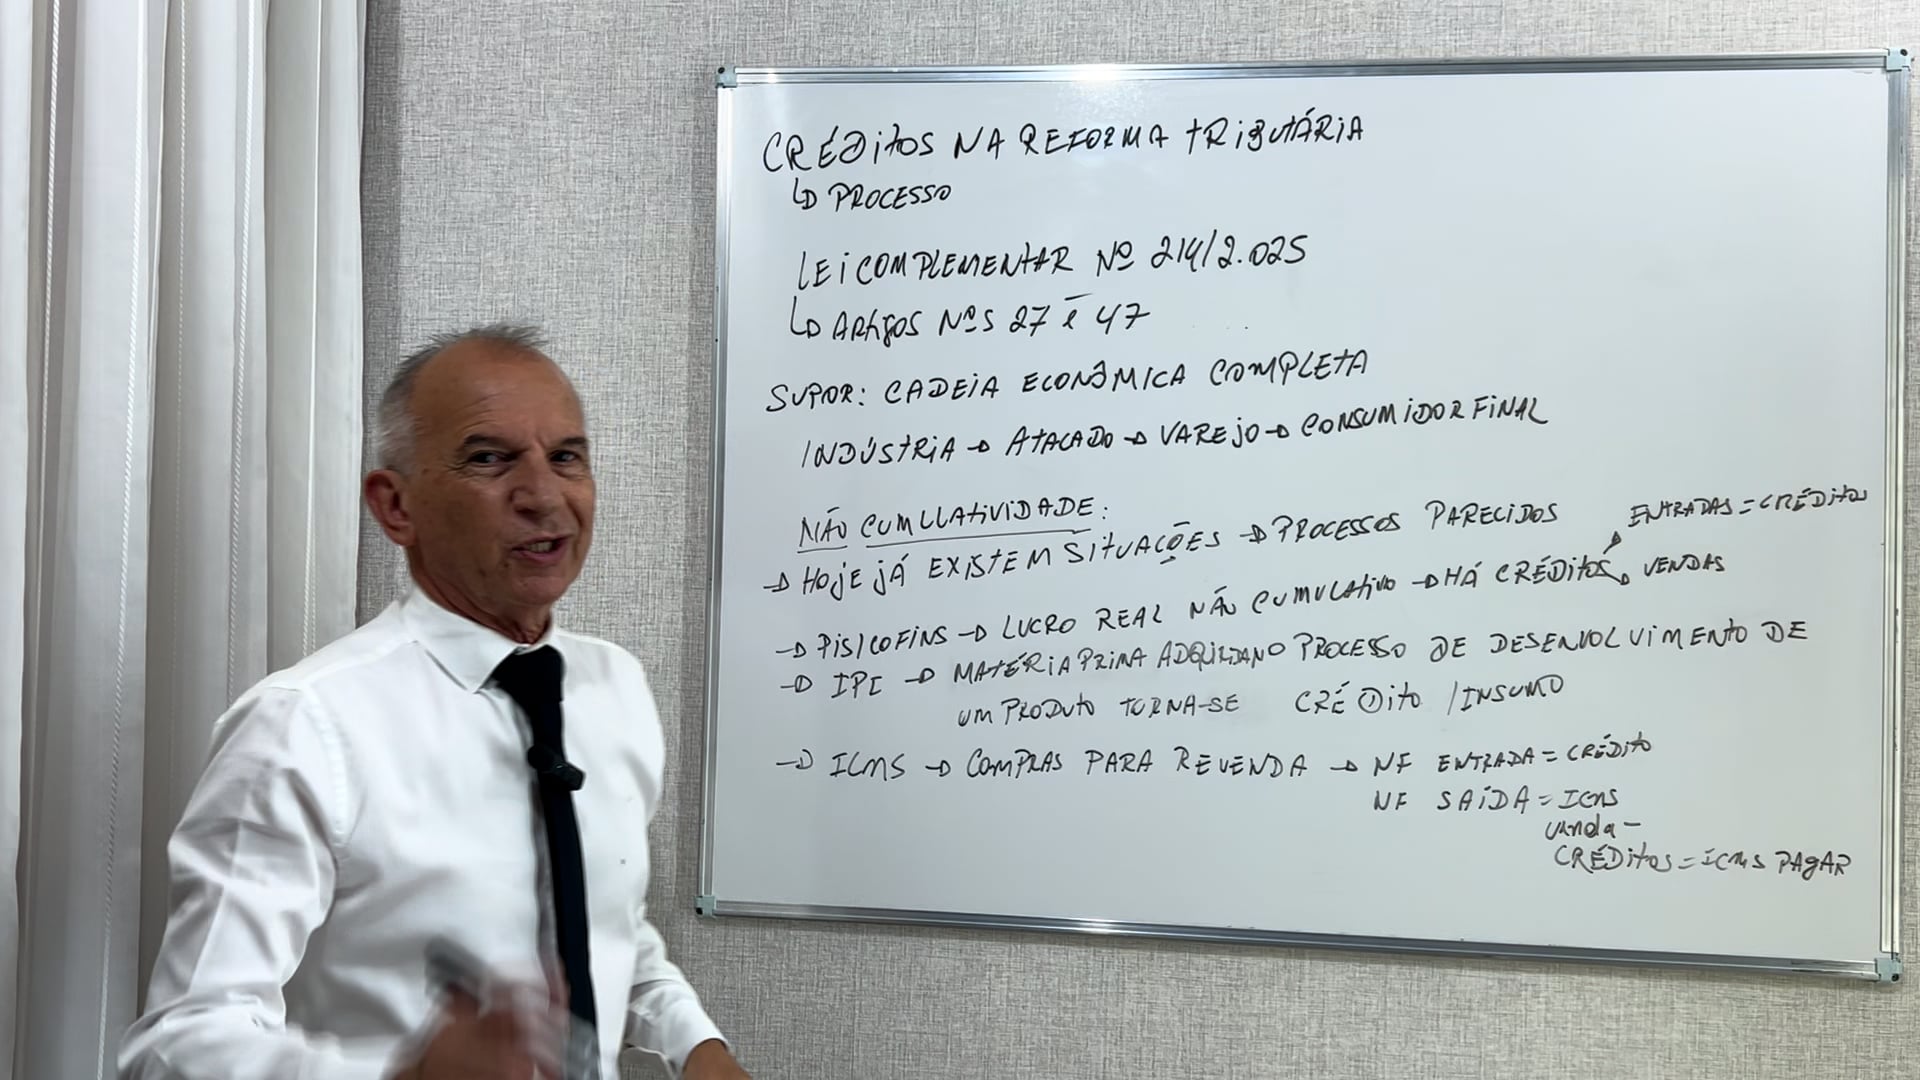 CRÉDITOS NA REFORMA TRIBUTÁRIA
↳ PROCESSO
LEI COMPLEMENTAR Nº 214/2.025
↳ ARTIGOS NºS 27 e 47
SUPOR: CADEIA ECONÔMICA COMPLETA
INDÚSTRIA → ATACADO → VAREJO → CONSUMIDOR FINAL
NÃO CUMULATIVIDADE:
→ HOJE JÁ EXISTEM SITUAÇÕES → PROCESSOS PARECIDOS
ENTRADAS = CRÉDITOS
→ PIS/COFINS → LUCRO REAL NÃO CUMULATIVO → HÁ CRÉDITOS → VENDAS
→ IPI → MATÉRIA PRIMA ADQUIRIDA NO PROCESSO DE DESENVOLVIMENTO DE
UM PRODUTO TORNA-SE CRÉDITO /INSUMO
→ ICMS → COMPRAS PARA REVENDA → NF ENTRADA = CRÉDITO
NF SAÍDA = ICMS
venda -
CRÉDITOS = ICMS PAGAR